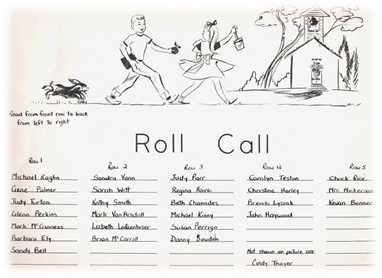 Read from front row to back
from left to right
Roll Call
Row 1
Michael Raglin
Gene Palmer
Judy Turton
Glenn Perkins
Mark McGuiness
Barbara Ely
Sandy Bell
Row 2
Sandra Vann
Sarah Witt
Kathy Smith
Mark VanArsdall
Lizbeth
Brian McCarroll
Row 3
Judy Parr
Regina
Beth Chamides
Michael Kinny
Susan Perrigo
Danny
Row 4
Carolyn Teston
Christine Hurley
Brenda
John Haywood
Not shown on picture are:
Cindy Thayer
Row 5
Chuck Rice
Mrs. Nickerson
Kevan Benner